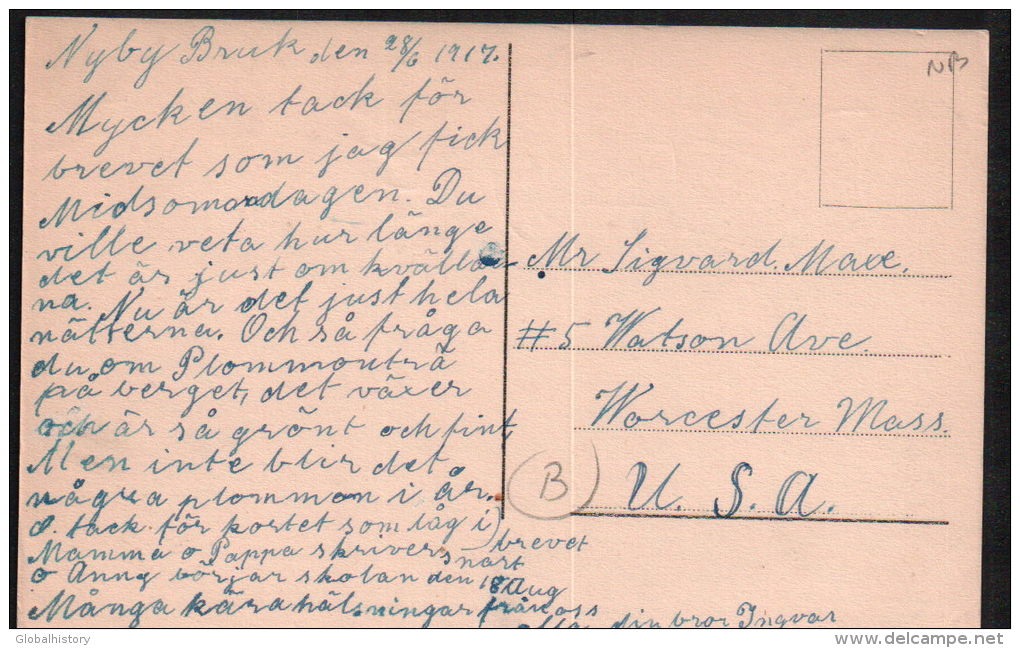 Nyby Bruk den 28/6 1917.
Mycken tack för
brevet som jag fick
Midsomardagen. Du
ville veta hur länge
det är just om kvällar
na. Nu är det just hela
nätterna. Och så fråga
du om Plommonträ
på berget, det växer
och är så grönt och fint,
Men inte blir det
några plommon i år.
o. tack för kortet som låg i
brevet
Mamma o Pappa skriver snart
o Anny börjar skolan den 18 Aug
Många kära hälsningar från oss
alla din bror Ingvar
NB
Mr Sigvard. Maxe.
#5 Watson Ave.
Worcester Mass.
U. S. A.
B
Globalhistory
www.delcampe.net